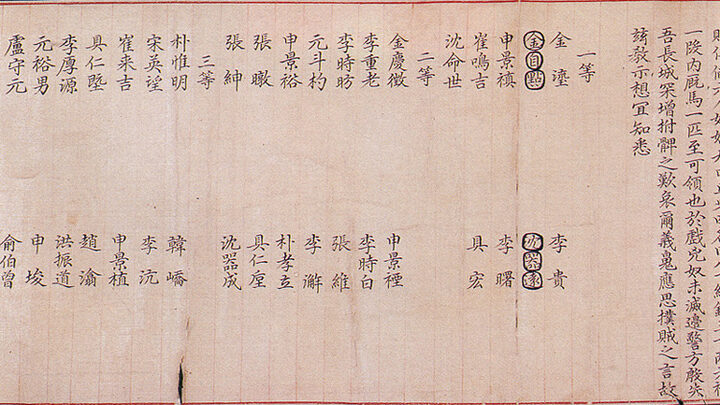 一段內厩馬一匹至可領也於戲兇奴未滅邊警方殷失
吾長城罙增拊髀之歎哀爾義鬼應思撲賊之言故
玆教示想宜知悉
一等
金瑬 李貴
金自點 沈器遠
申景禛 李曙
崔鳴吉 具宏
沈命世
二等
金慶徵 申景禋
李重老 李時白
李時昉 張維
元斗杓 李澥
申景裕 朴孝立
張暾 具仁垕
張紳 沈器成
三等
朴惟明 韓嶠
宋英望 李沆
崔來吉 申景植
具仁塈 趙潝
李厚源 洪振道
元裕男 申埈
盧守元 俞伯曾